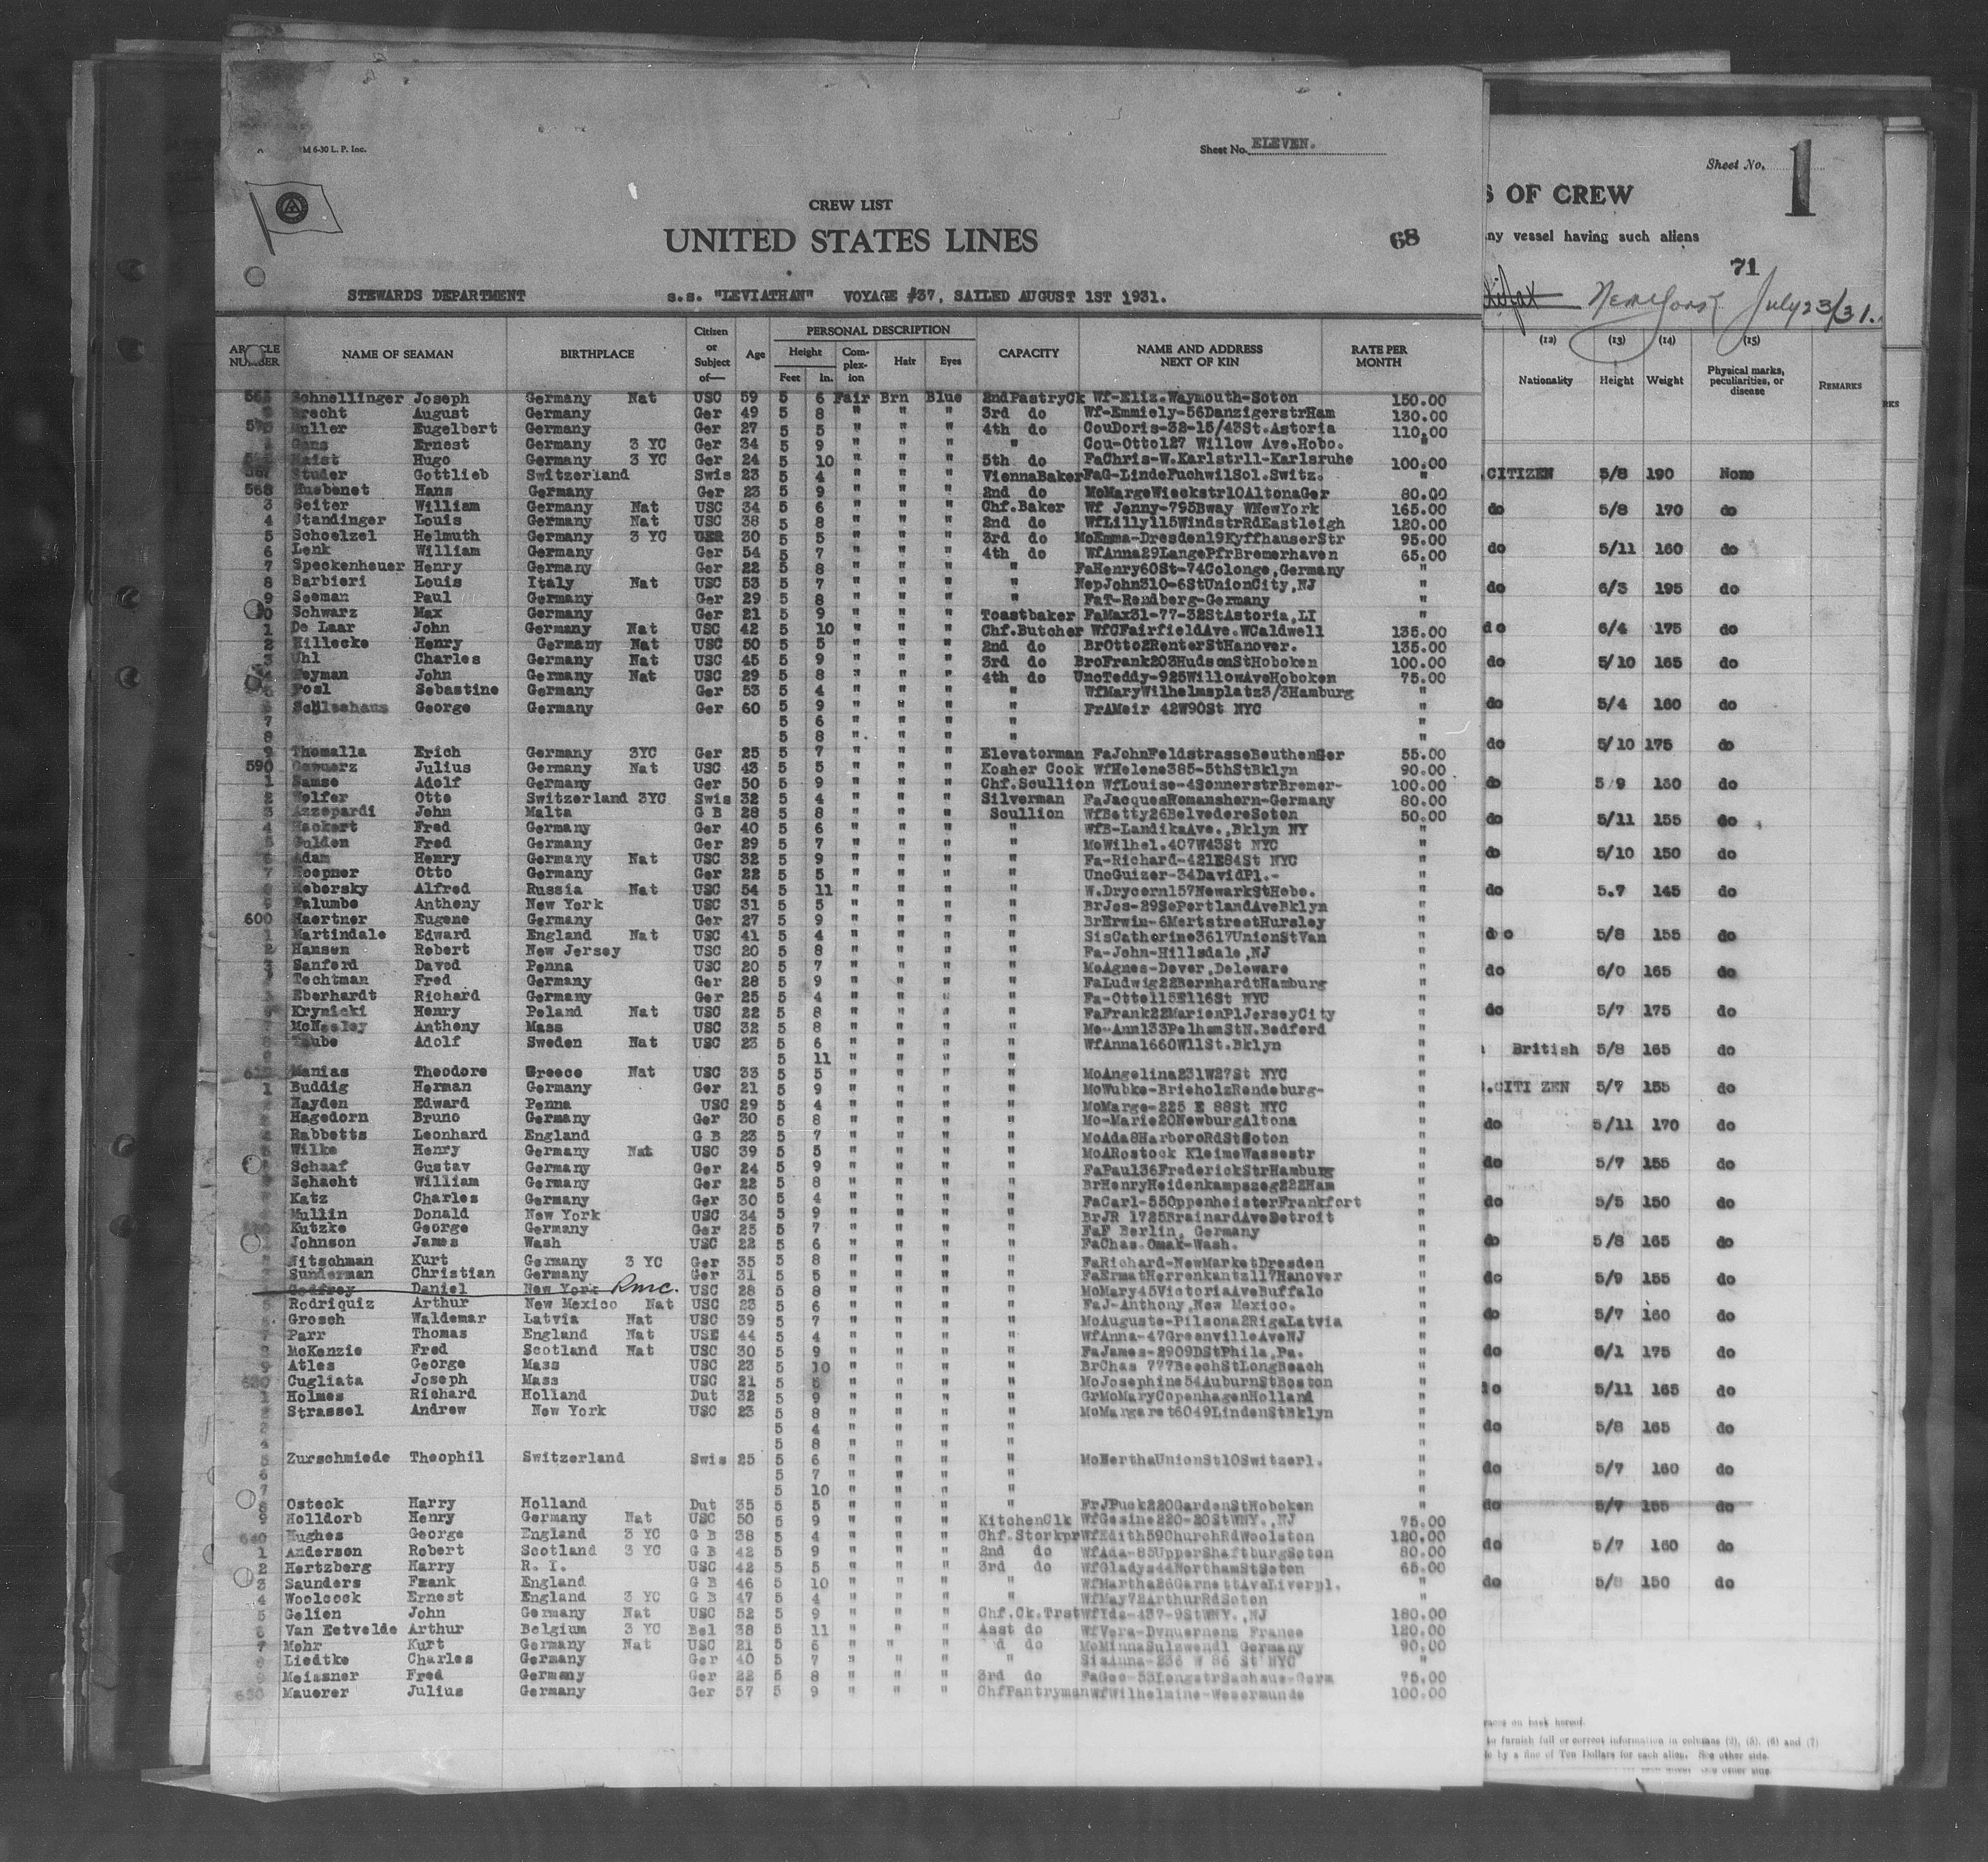 M 6-30 L. P. Inc.
Sheet No. ELEVEN.
CREW LIST
UNITED STATES LINES
68
STEWARDS DEPARTMENT s.s. "LEVIATHAN" VOYAGE #37, SAILED AUGUST 1ST 1931.
ARTICLE NUMBER NAME OF SEAMAN BIRTHPLACE Citizen or Subject of— Age PERSONAL DESCRIPTION Height Feet In. Complexion Hair Eyes CAPACITY NAME AND ADDRESS NEXT OF KIN RATE PER MONTH
Schnellinger Joseph Germany Nat USC 59 5 6 Fair Brn Blue 2ndPastryCk Wf-Eliz.Waymouth-Soton 150.00
Brecht August Germany Ger 49 5 8 " " " 3rd do Wf-Emmiely-56DanzigerstrHam 130.00
Muller Eugelbert Germany Ger 27 5 5 " " " 4th do CouDoris-32-15/43St.Astoria 110.00
Gans Ernest Germany 3 YC Ger 34 5 9 " " " " Cou-Otto127 Willow Ave.Hobo.
Haist Hugo Germany 3 YC Ger 24 5 10 " " " 5th do FaChris-W.Karlstrll-Karlsruhe 100.00
567 Studer Gottlieb Switzerland Swis 23 5 4 " " " ViennaBaker FaG-LindePuchwilSol.Switz. "
568 Huebenet Hans Germany Ger 23 5 9 " " " 2nd do MoMargeWieckstr10AltonaGer 80.00
3 Seiter William Germany Nat USC 34 5 6 " " " Chf.Baker Wf Jenny-795Bway WNewYork 165.00
4 Standinger Louis Germany Nat USC 38 5 8 " " " 2nd do WfLilly115WindstrRdEastleigh 120.00
5 Schoelzel Helmuth Germany 3 YC 30 5 5 " " " 3rd do MoEmma-Dresden19KyffhauserStr 95.00
6 Lenk William Germany Ger 54 5 7 " " " 4th do WfAnna29LangePfrBremerhaven 65.00
7 Speckenheuer Henry Germany Ger 22 5 8 " " " " FaHenry60St-74Colonge,Germany "
8 Barbieri Louis Italy Nat USC 53 5 7 " " " " NepJohn310-6StUnionCity,NJ "
9 Seeman Paul Germany Ger 29 5 8 " " " " FaT-Rendberg-Germany "
Schwarz Max Germany Ger 21 5 9 " " " Toastbaker FaMax31-77-32StAstoria,LI "
1 De Laar John Germany Nat USC 42 5 10 " " " Chf.Butcher WfCFairfieldAve.WCaldwell 135.00
2 Hillecke Henry Germany Nat USC 50 5 5 " " " 2nd do BrOtto2RenterStHanover. 135.00
3 Uhl Charles Germany Nat USC 45 5 9 " " " 3rd do BroFrank203HudsonStHoboken 100.00
Heyman John Germany Nat USC 29 5 8 " " " 4th do UncTeddy-925WillowAveHoboken 75.00
Posl Sebastine Germany Ger 53 5 4 " " " " WfMaryWilhelmsplatz3/3Hamburg "
George Germany Ger 60 5 9 " " " " FrAMeir 42W90St NYC "
7 5 6 " " " " "
8 5 8 " " " " "
9 Thomalla Erich Germany 3YC Ger 25 5 7 " " " Elevatorman FaJohnFeldstrasseBeuthenGer 55.00
590 Julius Germany Nat USC 43 5 5 " " " Kosher Cook WfHelene385-5thStBklyn 90.00
1 Samse Adolf Germany Ger 50 5 9 " " " Chf.Scullion WfLouise-4SonnerstrBremer- 100.00
2 Welfer Otto Switzerland 3YC Swis 32 5 4 " " " Silverman FaJacquesRomanshorn-Germany 80.00
3 Azzopardi John Malta G B 28 5 8 " " " Scullion WfBetty26BelvedereSoton 50.00
4 Hackert Fred Germany Ger 40 5 6 " " " " WfB-LandikaAve.,Bklyn NY "
5 Gulden Fred Germany Ger 29 5 7 " " " " MoWilhel.407W43St NYC "
6 Adam Henry Germany Nat USC 32 5 9 " " " " Fa-Richard-421E84St NYC "
7 Hoepner Otto Germany Ger 22 5 5 " " " " UncGuizer-34DavidPl.- "
Rebersky Alfred Russia Nat USC 54 5 11 " " " " W.Drycorn157NewarkStHobo. "
Palumbo Anthony New York USC 31 5 5 " " " " BrJos-29SoPortlandAveBklyn "
600 Haertner Eugene Germany Ger 27 5 9 " " " " BrErwin-6MertstreetHursley "
1 Martindale Edward England Nat USC 41 5 4 " " " " SisCatherine3617UnionStVan "
2 Hansen Robert New Jersey USC 20 5 8 " " " " Fa-John-Hillsdale,NJ "
3 Sanford Daved Penna USC 20 5 7 " " " " MoAgnes-Dover,Deleware "
Techtman Fred Germany Ger 28 5 9 " " " " FaLudwig22BernhardtHamburg "
Eberhardt Richard Germany Ger 25 5 4 " " " " Fa-Otto115E116St NYC "
Krynicki Henry Poland Nat USC 22 5 8 " " " " FaFrank22MarienPlJerseyCity "
McNeeley Anthony Mass USC 32 5 8 " " " " Mo-Ann133PelhamStN.Bedford "
Taube Adolf Sweden Nat USC 23 5 6 " " " " WfAnna1660W11St.Bklyn "
5 11 " " " " "
Manias Theodore Greece Nat USC 33 5 5 " " " " MoAngelina231W27St NYC "
1 Buddig Herman Germany Ger 21 5 9 " " " " MoWubke-BrieholzRendeburg- "
Hayden Edward Penna USC 29 5 4 " " " " MoMarge-225 E 88St NYC "
Hagedorn Bruno Germany Ger 30 5 8 " " " " Mo-Marie20NewburgAltona "
Rabbetts Leonhard England G B 23 5 7 " " " " MoAda8HarboroRdStSoton "
Wilke Henry Germany Nat USC 39 5 5 " " " " MoARostock KleimeWassestr "
Schaaf Gustav Germany Ger 24 5 9 " " " " FaPaul36FrederickStrHamburg "
Schacht William Germany Ger 22 5 8 " " " " BrHenryHeidenkampszeg222Ham "
Katz Charles Germany Ger 30 5 4 " " " " FaCarl-55OppenheisterFrankfort "
Mullin Donald New York USC 34 5 9 " " " " BrJR 1725BrainardAveDetroit "
Kutzke George Germany Ger 25 5 7 " " " " FaF Berlin, Germany "
Johnson James Wash USC 22 5 6 " " " " FaChas.Omak-Wash. "
Nitschman Kurt Germany 3 YC Ger 35 5 8 " " " " FaRichard-NewMarketDresden "
Sunderman Christian Germany Ger 31 5 5 " " " " FaErmatHerrenkantz117Hanover "
Godfrey Daniel New York Rmc. USC 28 5 8 " " " " MoMary45VictoriaAveBuffalo "
Rodriquiz Arthur New Mexico Nat USC 23 5 6 " " " " FaJ-Anthony,New Mexico. "
Grosch Waldemar Latvia Nat USC 39 5 7 " " " " MoAuguste-Pilsona2RigaLatvia "
7 Parr Thomas England Nat USE 44 5 4 " " " " WfAnna-47GreenvilleAveNJ "
McKenzie Fred Scotland Nat USC 30 5 9 " " " " FaJames-2909DStPhila,Pa. "
9 Atles George Mass USC 23 5 10 " " " " BrChas 777BeechStLongBeach "
Cugliata Joseph Mass USC 21 5 " " " " MoJosephine54AuburnStBoston "
1 Holmes Richard Holland Dut 32 5 9 " " " " GrMoMaryCopenhagenHolland "
Strassel Andrew New York USC 23 5 8 " " " " MoMargaret6049LindenStBklyn "
5 4 " " " " "
5 8 " " " " "
Zurschmiede Theophil Switzerland Swis 25 5 6 " " " " MoBerthaUnionSt10Switzerl. "
6 5 7 " " " " "
7 5 10 " " " " "
8 Osteck Harry Holland Dut 35 5 5 " " " " FrJPuck220GardenStHoboken "
9 Holldorb Henry Germany Nat USC 50 5 9 " " " KitchenClk WfGesine220-20StWNY.,NJ 75.00
640 Hughes George England 3 YC G B 38 5 4 " " " Chf.Storkpr WfEdith59ChurchRdWoolston 120.00
1 Anderson Robert Scotland 3 YC G B 42 5 9 " " " 2nd do WfAda-85UpperShaftburgSoton 80.00
2 Hertzberg Harry R. I. USC 42 5 5 " " " 3rd do WfGladys44NorthamStSoton 65.00
3 Saunders Frank England G B 46 5 10 " " " " WfMartha26GarnettAveLiverpl. "
4 Woolcock Ernest England 3 YC G B 47 5 4 " " " " WfMay72ArthurRdSoton "
5 Gelien John Germany Nat USC 52 5 9 " " " Chf.Ck.Trst WfIda-437-9StWNY.,NJ 180.00
6 Van Eetvelde Arthur Belgium 3 YC Bel 38 5 11 " " " Asst do WfVera-Dvnuernens France 120.00
7 Mohr Kurt Germany Nat USC 21 5 6 " " " do MoMinnaSulzwendl Germany 90.00
8 Liedtke Charles Germany Ger 40 5 7 " " " " SisAnna-236 W 86 St NYC "
9 Meissner Fred Germany Ger 22 5 8 " " " 3rd do FaGeo-53LongstrSachaus-Germ 75.00
650 Mauerer Julius Germany Ger 57 5 9 " " " ChfPantryman WfWilhelmine-Wesermunde 100.00
Sheet No. 1
S OF CREW
ny vessel having such aliens
71
New York July 23/31.
(12) (13) (14) (15)
Nationality Height Weight Physical marks, peculiarities, or disease REMARKS
CITIZEN 5/8 190 None
do 5/8 170 do
do 5/11 160 do
do 6/3 195 do
do 6/4 175 do
do 5/10 165 do
do 5/4 160 do
do 5/10 175 do
do 5/9 150 do
do 5/11 155 do
do 5/10 150 do
do 5.7 145 do
do 5/8 155 do
do 6/0 165 do
do 5/7 175 do
British 5/8 165 do
.CITI ZEN 5/7 155 do
do 5/11 170 do
do 5/7 155 do
do 5/5 150 do
do 5/8 165 do
do 5/9 155 do
do 5/7 160 do
do 6/1 175 do
do 5/11 165 do
do 5/8 165 do
do 5/7 160 do
do 5/7 155 do
do 5/7 160 do
do 5/8 150 do
on back hereof.
to furnish full or correct information in columns (2), (5), (6) and (7)
by a fine of Ten Dollars for each alien. See other side.